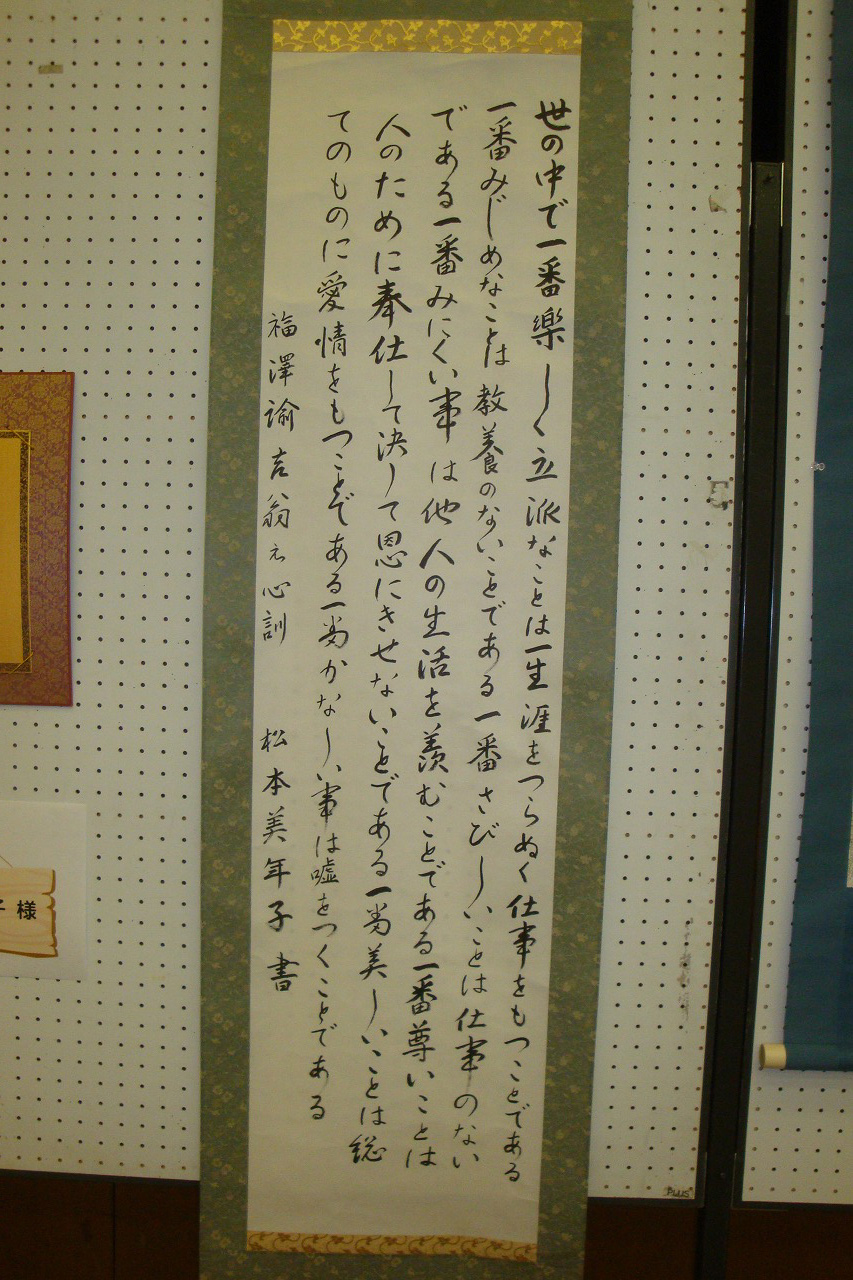 世の中で一番樂しく立派なことは一生涯をつらぬく仕事をもつことである
一番みじめなことは教養のないことである一番さびしいことは仕事のない
である一番みにくい事は他人の生活を羨むことである一番尊いことは
人のために奉仕して決して恩にきせないことである一番美しいことは総
てのものに愛情をもつことである一番かなしい事は嘘をつくことである
福澤諭吉翁 心訓 松本美年子書
子様
PLUS